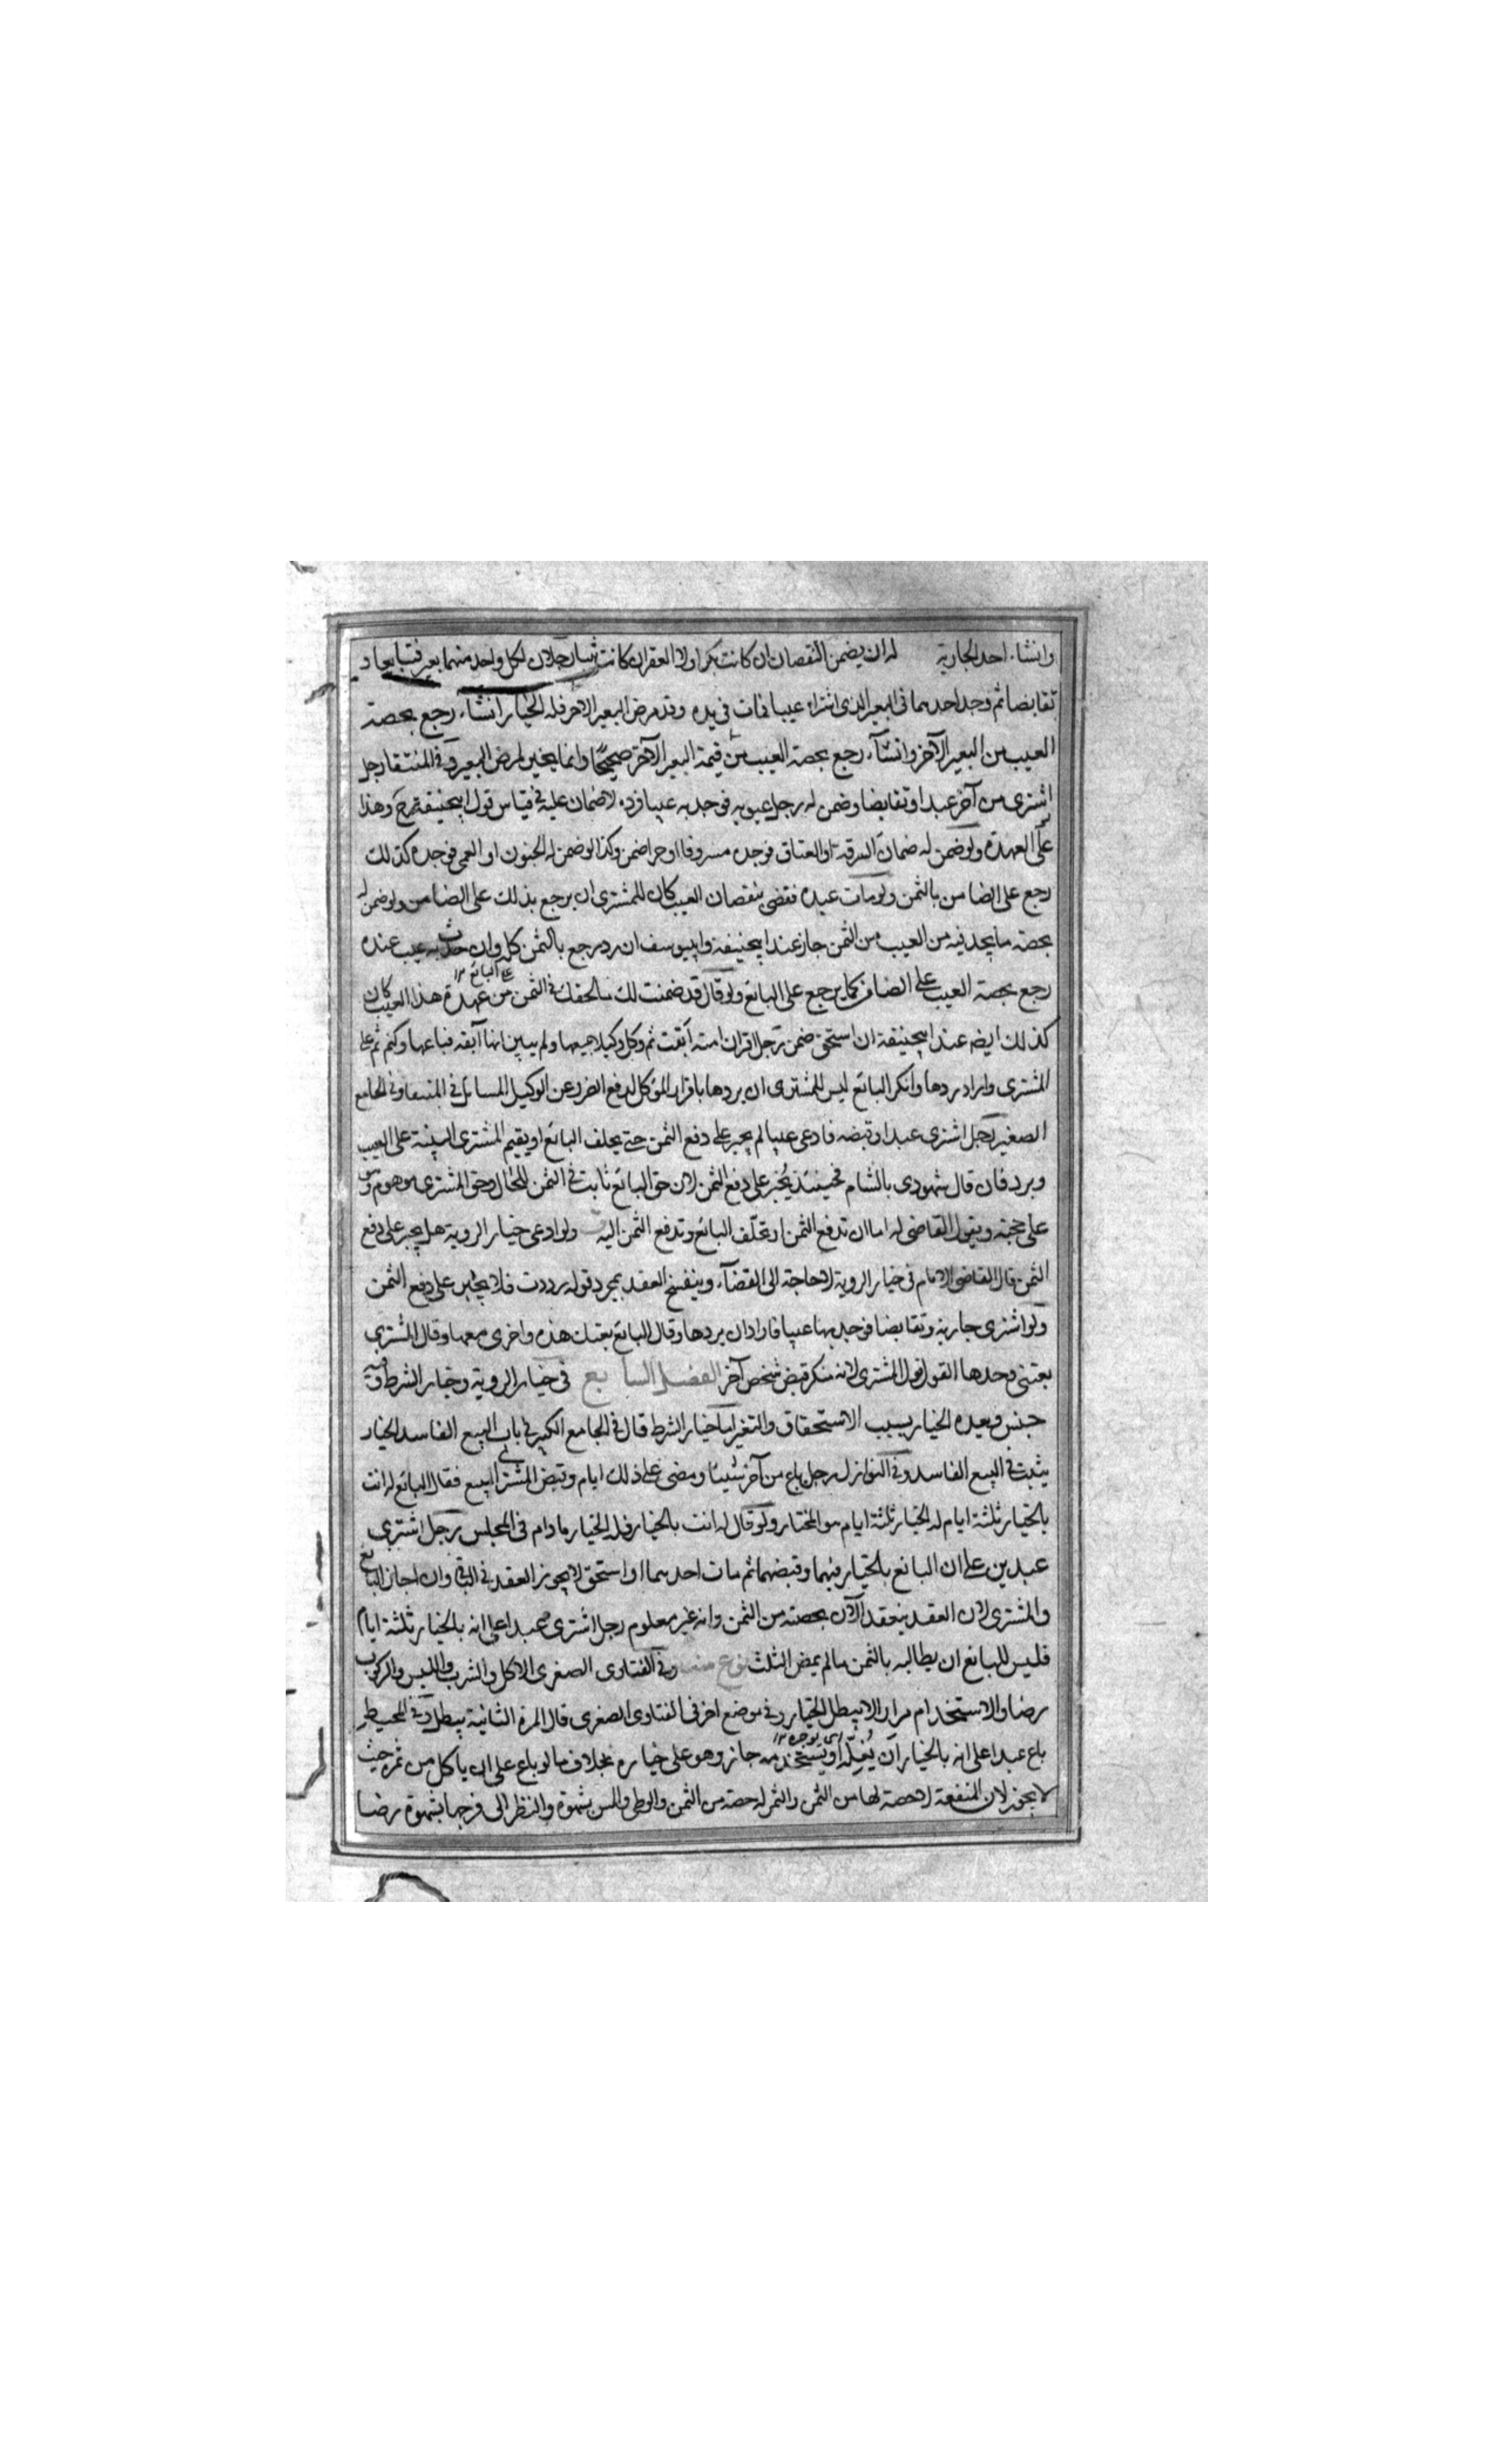 وانشاء احد الجارية له ان يضمن النقصان ان كانت بكرا ولا العقر ان كانت ثيبا رجلان لكل واحد منهما بعير فتبايعا و
تقابضا ثم وجد احدهما فى البعير الذى اشتراه عيبا فمات فى يده وقد مرض البعير الآخر فله الخيار انشاء رجع بحصة
العيب من البعير الآخر وانشاء رجع بحصة العيب من قيمة البعير الآخر صحيحا وانما يخير لمرض البعير وفى المنتقى رجل
اشترى من آخر عبدا وتقابضا وضمن له رجل عيوبه فوجد به عيبا فرده لا ضمان عليه فى قياس قول ابيحنيفة رح وهذا
على العهدة ولو ضمن له ضمان السرقة او العتاق فوجده مسروقا او حرا ضمن وكذا لو ضمن له الجنون او العمى فوجده كذلك
رجع على الضامن بالثمن ولو مات عبده فقضى بنقصان العيب كان للمشترى ان يرجع بذلك على الضامن ولو ضمن له
بحصة ما يجد فيه من العيب من الثمن جاز عند ابيحنيفة وابييوسف ان رد رجع بالثمن كله وان حدث به عيب عنده
رجع بحصة العيب على الضامن كما يرجع على البائع ولو قال قد ضمنت لك ما لحقك فى الثمن من عهدة هذا العيب كان
كذلك ايضه عند ابيحنيفة ان استحق ضمن رجل اقران امته ابقت ثم وكل وكيلا ببيعها ولم يبين انها آبقة فباعها وكتم ثم علم
المشترى واراد ردها وانكر البائع ليس للمشترى ان يردها باقرار المؤكل لدفع الضرر عن الوكيل المسائل فى المنتقى وفى الجامع
الصغير رجل اشترى عبدا وقبضه فادعى عيبا لم يجبر على دفع الثمن حتى يحلف البائع او يقيم المشترى البينة على العيب
ويرد فان قال شهودى بالشام فحينئذ يجبر على دفع الثمن لان حق البائع ثابت فى الثمن للحال وحق المشترى موهوم وهو
على حجته ويقول القاضى له اما ان تدفع الثمن او تحلف البائع وتدفع الثمن اليه ولو ادعى خيار الروية هل يجبر على دفع
الثمن قال القاضى الامام فى خيار الروية لا حاجة الى القضاء وينفسخ العقد بمجرد قوله رددت فلا يجبر على دفع الثمن
ولو اشترى جارية وتقابضا فوجد بها عيبا فاراد ان يردها وقال البائع بعتك هذه واخرى معها وقال المشترى
بعتنى وحدها القول قول المشترى لانه منكر قبض شخص آخر الفصل السابع فى خيار الروية وخيار الشرط وفيه
جنس وهذه الخيار بسبب الاستحقاق والتغير اما خيار الشرط قال فى الجامع الكبير فى باب البيع الفاسد الخيار
يثبت فى البيع الفاسد وفى النوازل رجل باع من آخر شيئا ومضى على ذلك ايام وقبض المشترى المبيع فقال البائع له انت
بالخيار ثلثة ايام له الخيار ثلثة ايام هو المختار ولو قال له انت بالخيار فله الخيار ما دام فى المجلس رجل اشترى
عبدين على ان البائع بالخيار فيهما وقبضهما ثم مات احدهما او استحق لا يجوز العقد فى الباقى وان اجاز البائع
والمشترى لان العقد ينعقد الآن بحصته من الثمن وانه غير معلوم رجل اشترى عبدا على انه بالخيار ثلثة ايام
فليس للبائع ان يطالبه بالثمن ما لم يمض الثلث نوع منه وفى الفتاوى الصغرى الاكل والشرب واللبس والركوب
رضا والاستخدام مرارا لا يبطل الخيار وفى موضع اخر فى الفتاوى الصغرى قال المرة الثانية يبطل وفى المحيط
باع عبدا على انه بالخيار ان يغله او يستخدمه جاز وهو على خياره بخلاف ما لو باع على ان ياكل من ثمره حيث
لا يجوز لان المنفعة لا حصة لها من الثمن والثمر له حصة من الثمن والوطى واللمس بشهوة والنظر الى فرجها بشهوة رضا